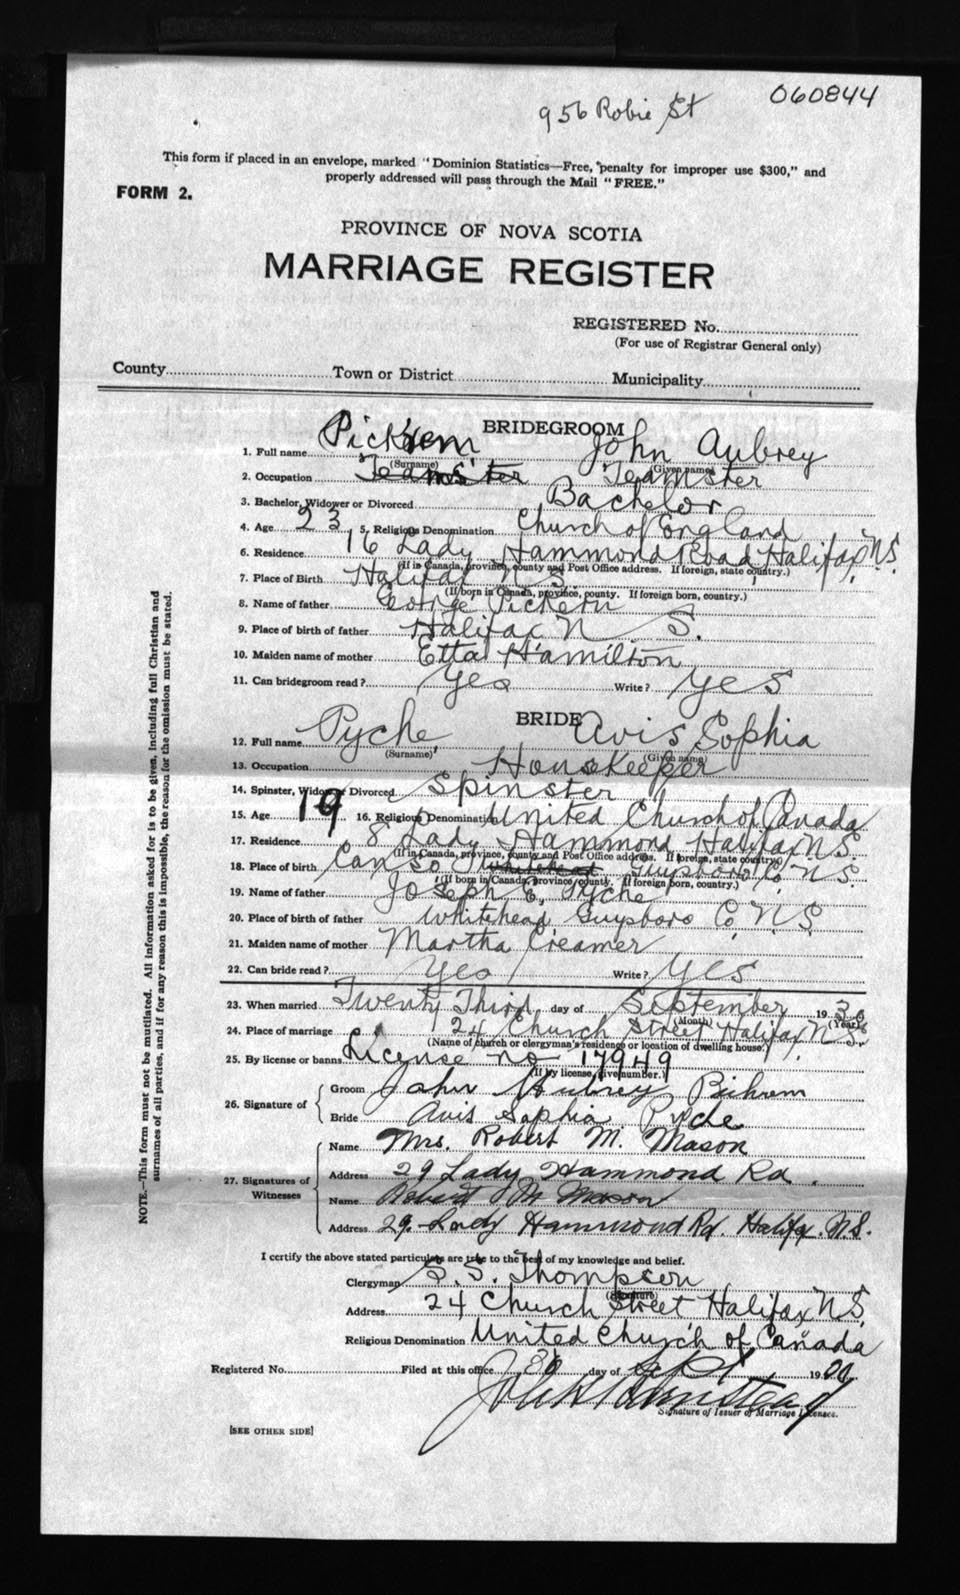 060844
956 Robie St
This form if placed in an envelope, marked "Dominion Statistics—Free, penalty for improper use $300," and
properly addressed will pass through the Mail "FREE."
FORM 2.
PROVINCE OF NOVA SCOTIA
MARRIAGE REGISTER
REGISTERED No.
(For use of Registrar General only)
County Town or District Municipality
BRIDEGROOM
1. Full name John Aubrey
(Surname) (Given name)
2. Occupation Teamster Teamster
3. Bachelor, Widower or Divorced Bachelor
4. Age 23 5. Religious Denomination Church of England
6. Residence 16 Lady Hammond Road Halifax N.S.
(If in Canada, province, county and Post Office address. If foreign, state country.)
7. Place of Birth Halifax N.S.
(If born in Canada, province, county. If foreign born, country.)
8. Name of father George
9. Place of birth of father Halifax N S.
10. Maiden name of mother Etta Hamilton
11. Can bridegroom read? Yes Write? Yes
BRIDE
12. Full name Pyche, Avis Sophia
(Surname) (Given name)
13. Occupation Housekeeper
14. Spinster, Widow or Divorced Spinster
15. Age 19 16. Religious Denomination United Church of Canada
17. Residence 8 Lady Hammond Halifax N S.
(If in Canada, province, county and Post Office address. If foreign, state country.)
18. Place of birth Canso Whitehead Guysboro Co. N S.
(If born in Canada, province, county. If foreign born, country.)
19. Name of father Joseph E. Pyche
20. Place of birth of father Whitehead Guysboro Co. N.S.
21. Maiden name of mother Martha Creamer
22. Can bride read? Yes Write? Yes
23. When married Twenty Third day of September 19
(Month) (Year)
24. Place of marriage 24 Church Street Halifax N.S.
(Name of church or clergyman's residence or location of dwelling house.)
25. By license or banns License no 17949
(If by license, give number.)
26. Signature of
Groom John Aubrey
Bride Avis Sophia Pyche
27. Signatures of Witnesses
Name Mrs. Robert M. Mason
Address 29 Lady Hammond Rd.
Name Robert M Mason
Address 29 Lady Hammond Rd. Halifax. N.S.
I certify the above stated particulars are true to the best of my knowledge and belief.
Clergyman S. S. Thompson
(Signature)
Address 24 Church Street Halifax N S.
Religious Denomination United Church of Canada
Registered No. Filed at this office day of Sept 19
Signature of Issuer of Marriage Licenses.
[SEE OTHER SIDE]
NOTE.—This form must not be mutilated. All information asked for is to be given, including full Christian and
surnames of all parties, and if for any reason this is impossible, the reason for the omission must be stated.